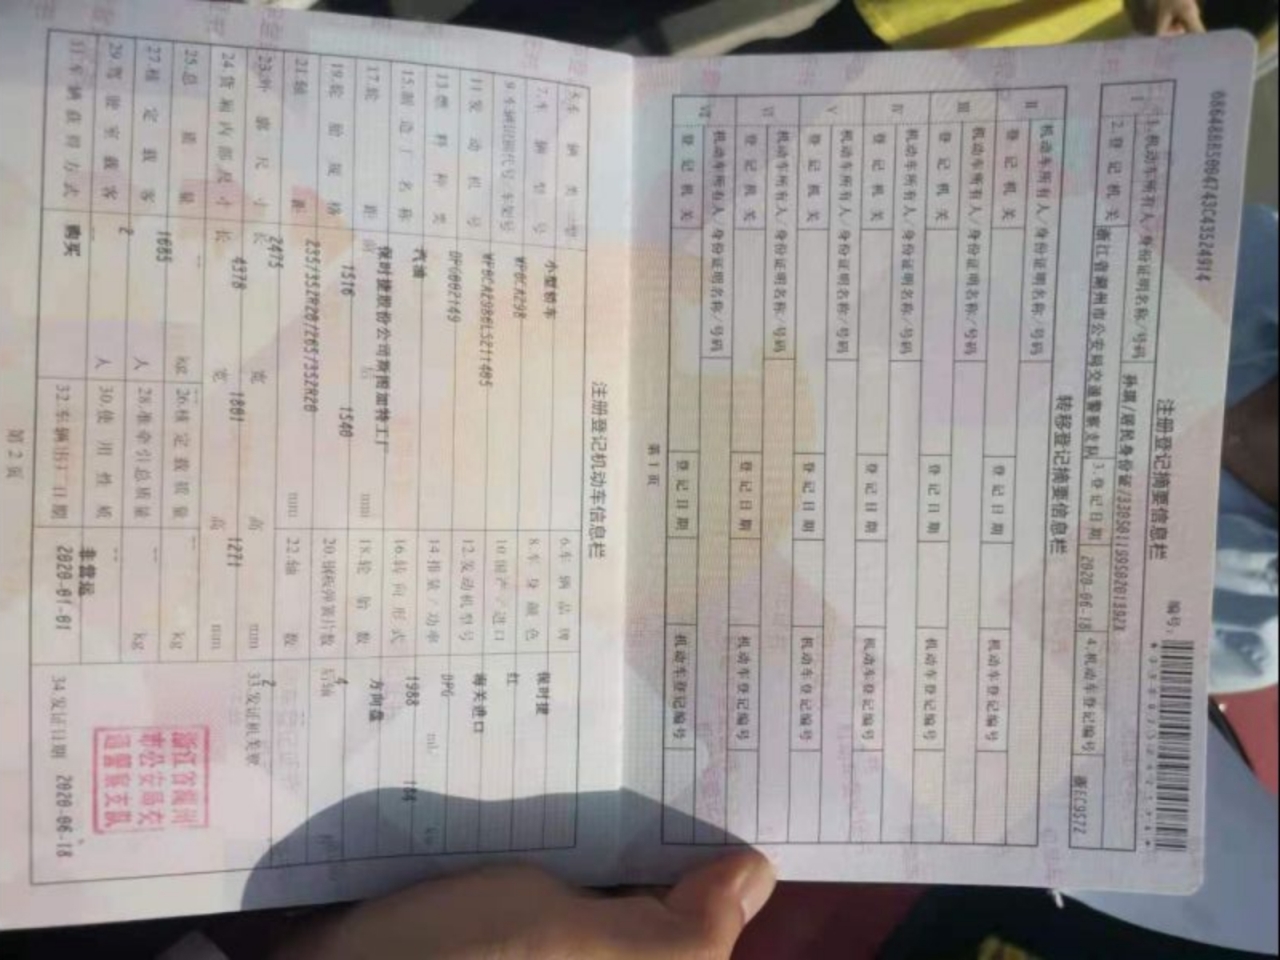 068488B5004743C43524914
注册登记摘要信息栏
编号:
I
1.机动车所有人/身份证明名称/号码
孙琪/居民身份证/33050119950201392X
2.登记机关
浙江省湖州市公安局交通警察支队
3.登记日期
2020-06-18
4.机动车登记编号
浙EC9S72
转移登记摘要信息栏
II
机动车所有人/身份证明名称/号码
登记机关
登记日期
机动车登记编号
III
机动车所有人/身份证明名称/号码
登记机关
登记日期
机动车登记编号
IV
机动车所有人/身份证明名称/号码
登记机关
登记日期
机动车登记编号
V
机动车所有人/身份证明名称/号码
登记机关
登记日期
机动车登记编号
VI
机动车所有人/身份证明名称/号码
登记机关
登记日期
机动车登记编号
VII
机动车所有人/身份证明名称/号码
登记机关
登记日期
机动车登记编号
第1页
注册登记机动车信息栏
5.车辆类型 小型轿车 6.车辆品牌 保时捷
7.车辆型号 WP0CA298 8.车身颜色 红
9.车辆识别代号/车架号 WP0CA2986LS211485 10.国产/进口 海关进口
11.发动机号 DPG002149 12.发动机型号 DPG
13.燃料种类 汽油 14.排量/功率 1988 ml/ kw
15.制造厂名称 保时捷股份公司斯图加特工厂 16.转向形式 方向盘
17.轮距 前 1516 后 1540 mm 18.轮胎数 4
19.轮胎规格 235/35ZR20/265/35ZR20 20.钢板弹簧片数 后轴
21.轴距 2475 mm 22.轴数 2
23.外廓尺寸 长 4378 宽 1801 高 1271 mm 33.发证机关章
24.货厢内部尺寸 长 宽 高 mm
25.总质量 1685 kg 26.核定载质量 -- kg
27.核定载客 2 人 28.准牵引总质量 -- kg
29.驾驶室载客 -- 人 30.使用性质 非营运
31.车辆获得方式 购买 32.车辆出厂日期 2020-01-01 34.发证日期 2020-06-18
浙江省湖州
市公安局交
通警察支队
第2页